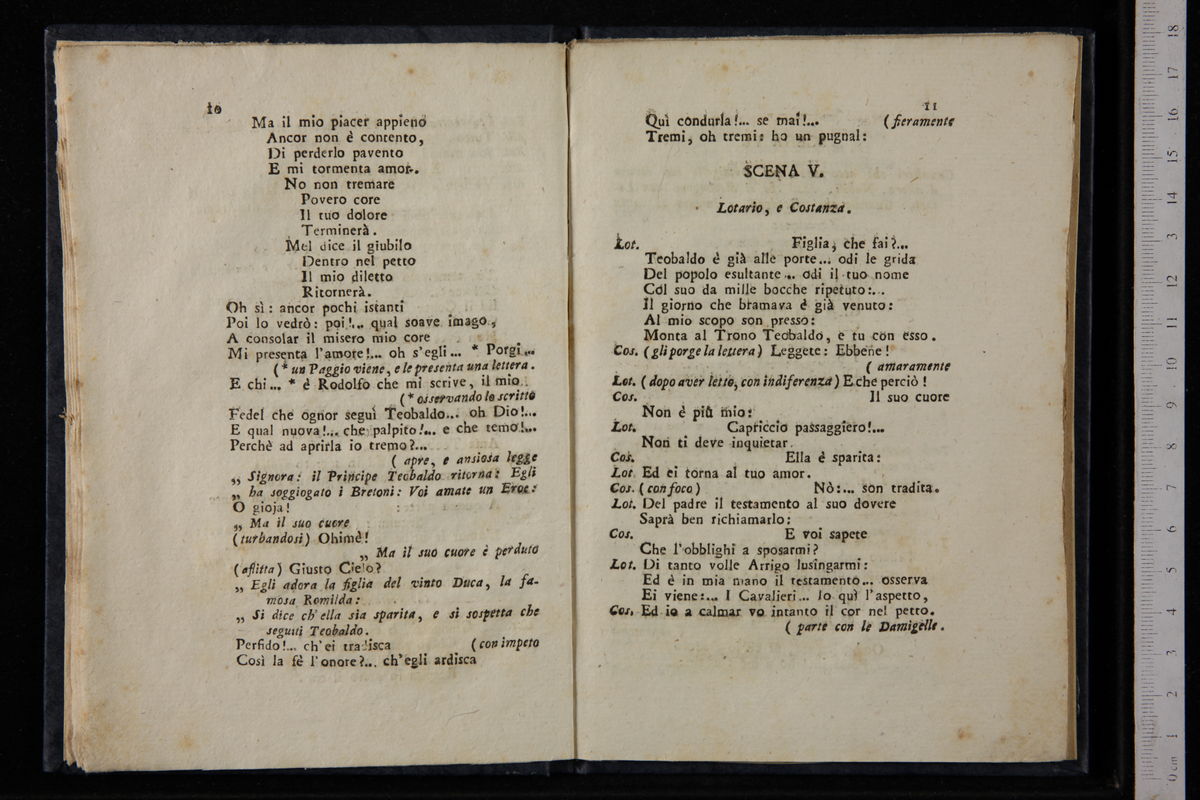 10
Ma il mio piacer appieno
Ancor non è contento,
Di perderlo pavento
E mi tormenta amor.
No non tremare
Povero core
Il tuo dolore
Terminerà.
Mel dice il giubilo
Dentro nel petto
Il mio diletto
Ritornerà.
Oh sì: ancor pochi istanti
Poi lo vedrò: poi!... qual soave imago,
A consolar il misero mio core
Mi presenta l'amore!... oh s'egli... * Porgi...
(* un Paggio viene, e le presenta una lettera.
E chi... * è Rodolfo che mi scrive, il mio
(* osservando lo scritto
Fedel che ognor seguì Teobaldo... oh Dio!...
E qual nuova!... che palpito!... e che temo!...
Perchè ad aprirla io tremo?...
( apre, e ansiosa legge
„ Signora: il Principe Teobaldo ritorna: Egli
„ ha soggiogato i Bretoni: Voi amate un Eroe:
O gioja!
„ Ma il suo cuore
(turbandosi) Ohimè!
„ Ma il suo cuore è perduto
(aflitta) Giusto Cielo?
„ Egli adora la figlia del vinto Duca, la fa-
mosa Romilda:
„ Si dice ch'ella sia sparita, e si sospetta che
seguiti Teobaldo.
Perfido!... ch'ei tradisca (con impeto
Così la fè l'onore?... ch'egli ardisca
11
Quì condurla!... se mai!... (fieramente
Tremi, oh tremi: ho un pugnal:
SCENA V.
Lotario, e Costanza.
Lot. Figlia, che fai?...
Teobaldo è già alle porte... odi le grida
Del popolo esultante... odi il tuo nome
Col suo da mille bocche ripetuto:...
Il giorno che bramava è già venuto:
Al mio scopo son presso:
Monta al Trono Teobaldo, e tu con esso.
Cos. (gli porge la lettera) Leggete: Ebbene!
( amaramente
Lot. (dopo aver letto, con indiferenza) E che perciò!
Cos. Il suo cuore
Non è più mio:
Lot. Capriccio passaggiero!...
Non ti deve inquietar.
Cos. Ella è sparita:
Lot. Ed ei torna al tuo amor.
Cos. (con foco) Nò:... son tradita.
Lot. Del padre il testamento al suo dovere
Saprà ben richiamarlo:
Cos. E voi sapete
Che l'obblighi a sposarmi?
Lot. Di tanto volle Arrigo lusingarmi:
Ed è in mia mano il testamento... osserva
Ei viene:... I Cavalieri... Io quì l'aspetto,
Cos. Ed io a calmar vo intanto il cor nel petto.
( parte con le Damigelle.